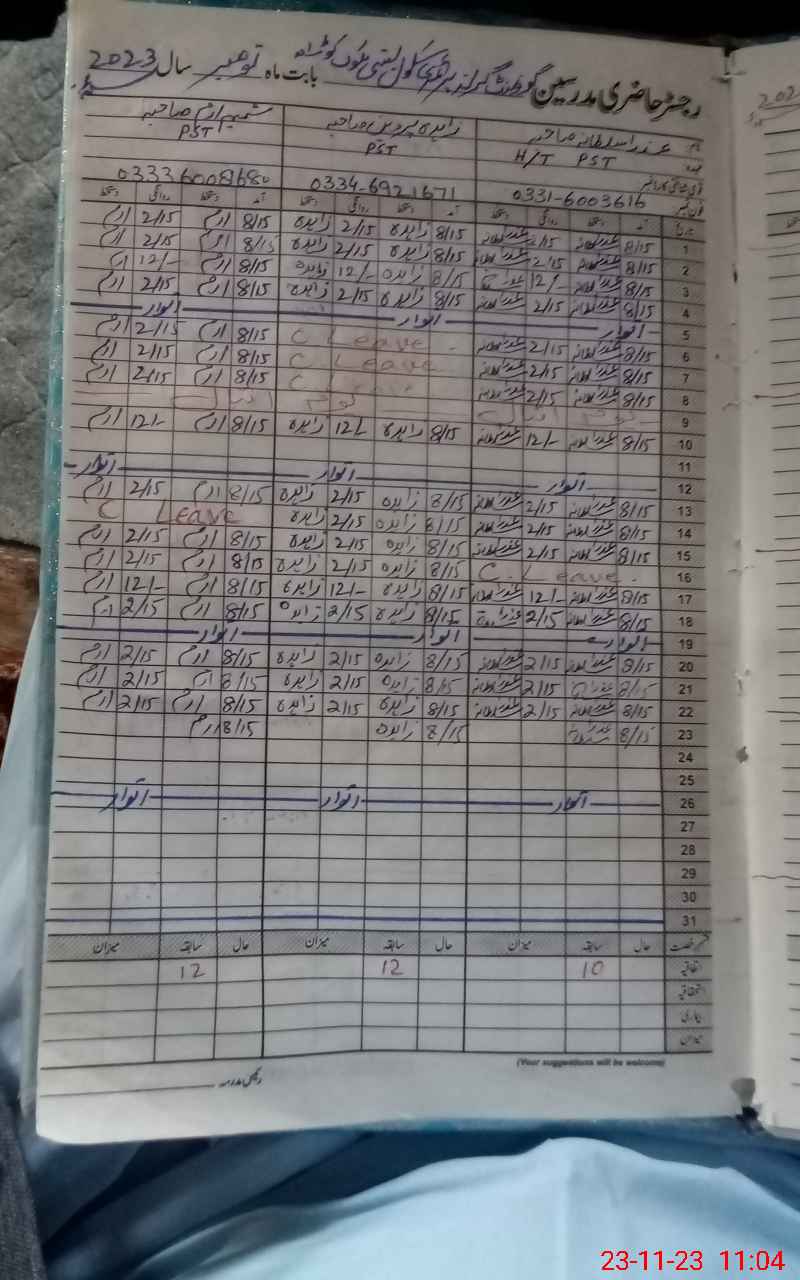 رجسٹر حاضری مدرسین گورنمنٹ گرلز پرائمری سکول بستی بابت ماہ نومبر سال 2023ء
نام عذرا سلطانہ صاحبہ زاہدہ پروین صاحبہ شمیم ارم صاحبہ
عہدہ H/T PST PST PST
0331-6003616 0334-6921671 03336008680
تاریخ آمد دستخط روانگی دستخط آمد دستخط روانگی دستخط آمد دستخط روانگی دستخط
1 8/15 عذرا سلطانہ 2/15 عذرا سلطانہ 8/15 زاہدہ 2/15 زاہدہ 8/15 ارم 2/15 ارم
2 8/15 عذرا سلطانہ 2/15 عذرا سلطانہ 8/15 زاہدہ 2/15 زاہدہ 8/15 ارم 2/15 ارم
3 8/15 عذرا سلطانہ 12/- عذرا سلطانہ 8/15 زاہدہ 12/- زاہدہ 8/15 ارم 12/- ارم
4 8/15 عذرا سلطانہ 2/15 عذرا سلطانہ 8/15 زاہدہ 2/15 زاہدہ 8/15 ارم 2/15 ارم
5 اتوار اتوار اتوار
6 8/15 عذرا سلطانہ 2/15 عذرا سلطانہ C Leave 8/15 ارم 2/15 ارم
7 8/15 عذرا سلطانہ 2/15 عذرا سلطانہ C Leave 8/15 ارم 2/15 ارم
8 8/15 عذرا سلطانہ 2/15 عذرا سلطانہ C Leave 8/15 ارم 2/15 ارم
9 یوم اقبال یوم اقبال
10 8/15 عذرا سلطانہ 12/- عذرا سلطانہ 8/15 زاہدہ 12/- زاہدہ 8/15 ارم 12/- ارم
11
12 اتوار اتوار اتوار
13 8/15 عذرا سلطانہ 2/15 عذرا سلطانہ 8/15 زاہدہ 2/15 زاہدہ 8/15 ارم 2/15 ارم
14 8/15 عذرا سلطانہ 2/15 عذرا سلطانہ 8/15 زاہدہ 2/15 زاہدہ C Leave
15 8/15 عذرا سلطانہ 2/15 عذرا سلطانہ 8/15 زاہدہ 2/15 زاہدہ 8/15 ارم 2/15 ارم
16 C. Leave. 8/15 زاہدہ 2/15 زاہدہ 8/15 ارم 2/15 ارم
17 8/15 عذرا سلطانہ 12/- عذرا سلطانہ 8/15 زاہدہ 12/- زاہدہ 8/15 ارم 12/- ارم
18 8/15 عذرا سلطانہ 2/15 عذرا سلطانہ 8/15 زاہدہ 2/15 زاہدہ 8/15 ارم 2/15 ارم
19 اتوار اتوار اتوار
20 8/15 عذرا سلطانہ 2/15 عذرا سلطانہ 8/15 زاہدہ 2/15 زاہدہ 8/15 ارم 2/15 ارم
21 8/15 عذرا سلطانہ 2/15 عذرا سلطانہ 8/15 زاہدہ 2/15 زاہدہ 8/15 ارم 2/15 ارم
22 8/15 عذرا سلطانہ 2/15 عذرا سلطانہ 8/15 زاہدہ 2/15 زاہدہ 8/15 ارم 2/15 ارم
23 8/15 عذرا سلطانہ 8/15 زاہدہ 8/15 ارم
24
25
26 اتوار اتوار اتوار
27
28
29
30
31
قسم رخصت حال سابقہ میزان حال سابقہ میزان حال سابقہ میزان
اتفاقیہ 10 12 12
استحقاقیہ
بیماری
میزان
(Your suggestions will be welcome)
دستخط صدر مدرسہ
23-11-23 11:04